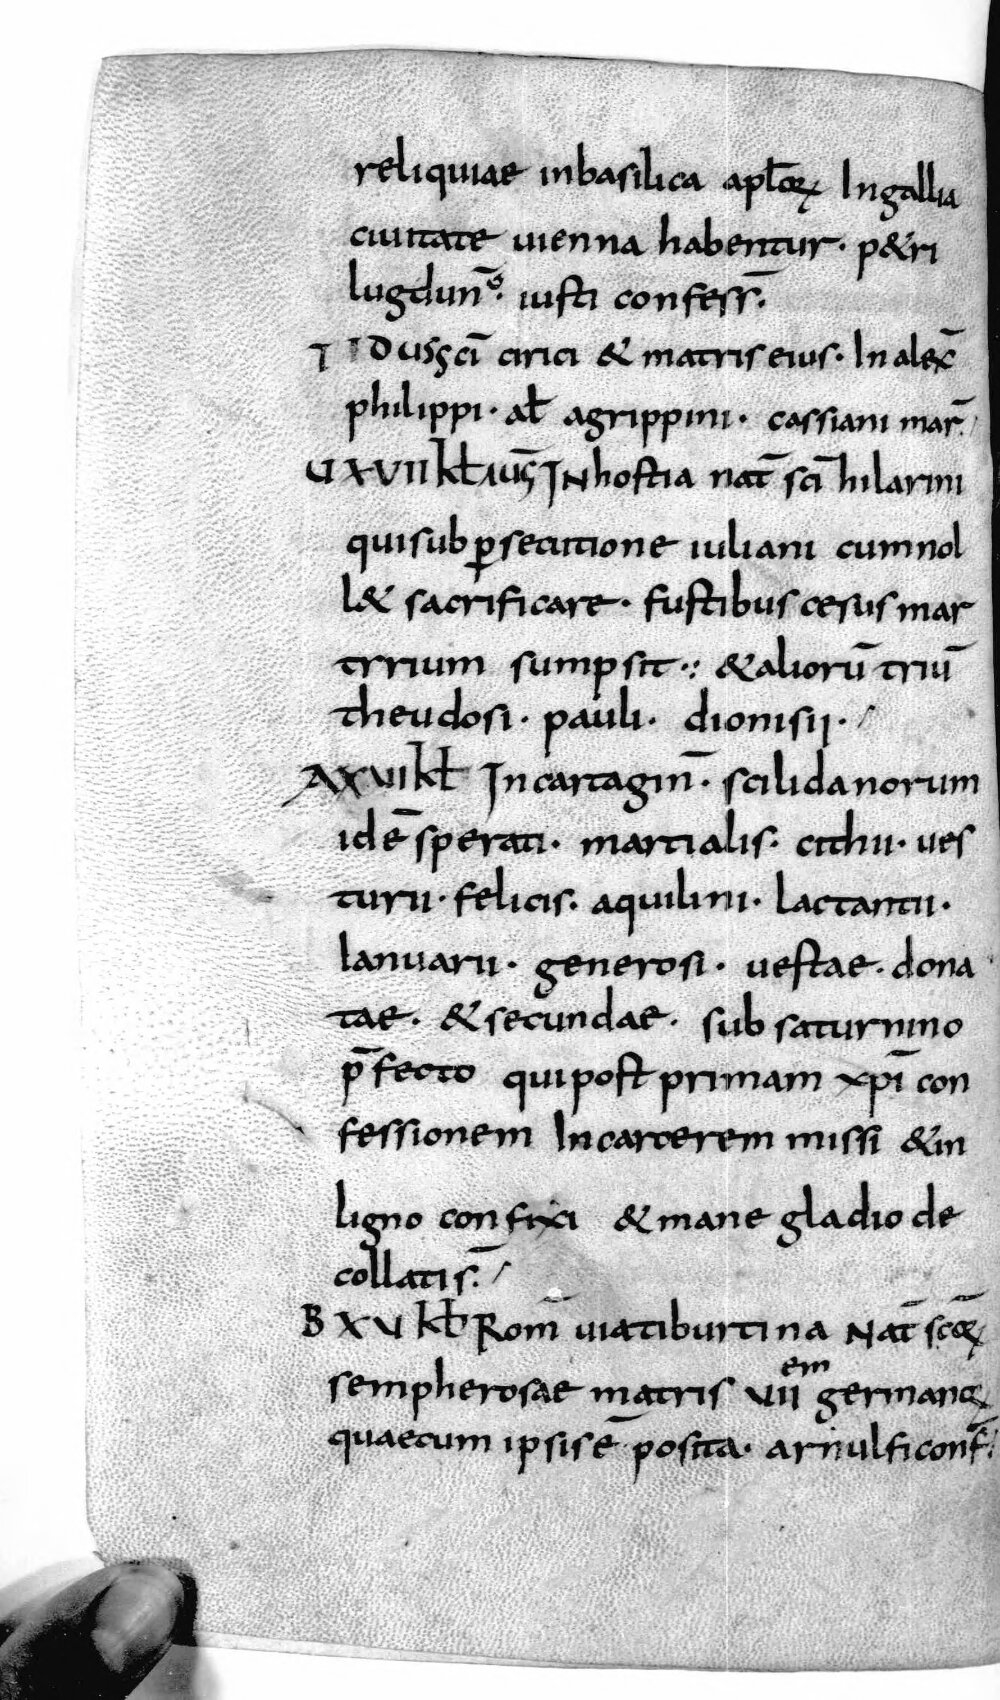 reliquiae inbasilica apłoꝝ Ingallia
ciuitate uienna habentur· p&ri
lugdun̄ᵒ· iusti confess̄·
G IDUS sc̄i cirici & matris eius· In alex̄
philippi· ał agrippini· cassiani mar̄·/
U XVII kł aūg IN hostia nat̄ sc̄i hilarini
quisub ꝑsecutione iuliani cumnol
l& sacrificare· fustibus cesus mar
trrium sumpsit·: &aliorū triū
theudosi· pauli· dionisii·/
A XVI kł In cartagin̄· scilidanorum
idē sperati· martialis· cithii· ues
turii· felicis· aquilini· lactantii·
Ianuarii· generosi· uestae· dona
tae· & secundae· sub saturnino
p̄fecto quipost primam xp̄i con
fessionem In carcerem missi &in
ligno confixi & mane gladio de
collatis̄·/
B XV kł Rom̄ uiatiburtina Nat̄ sc̄oꝝ
sempherosae matris VIIᵉᵐ germanoꝝ
quaecum ipsis ē posita· arnulfi conf̄·